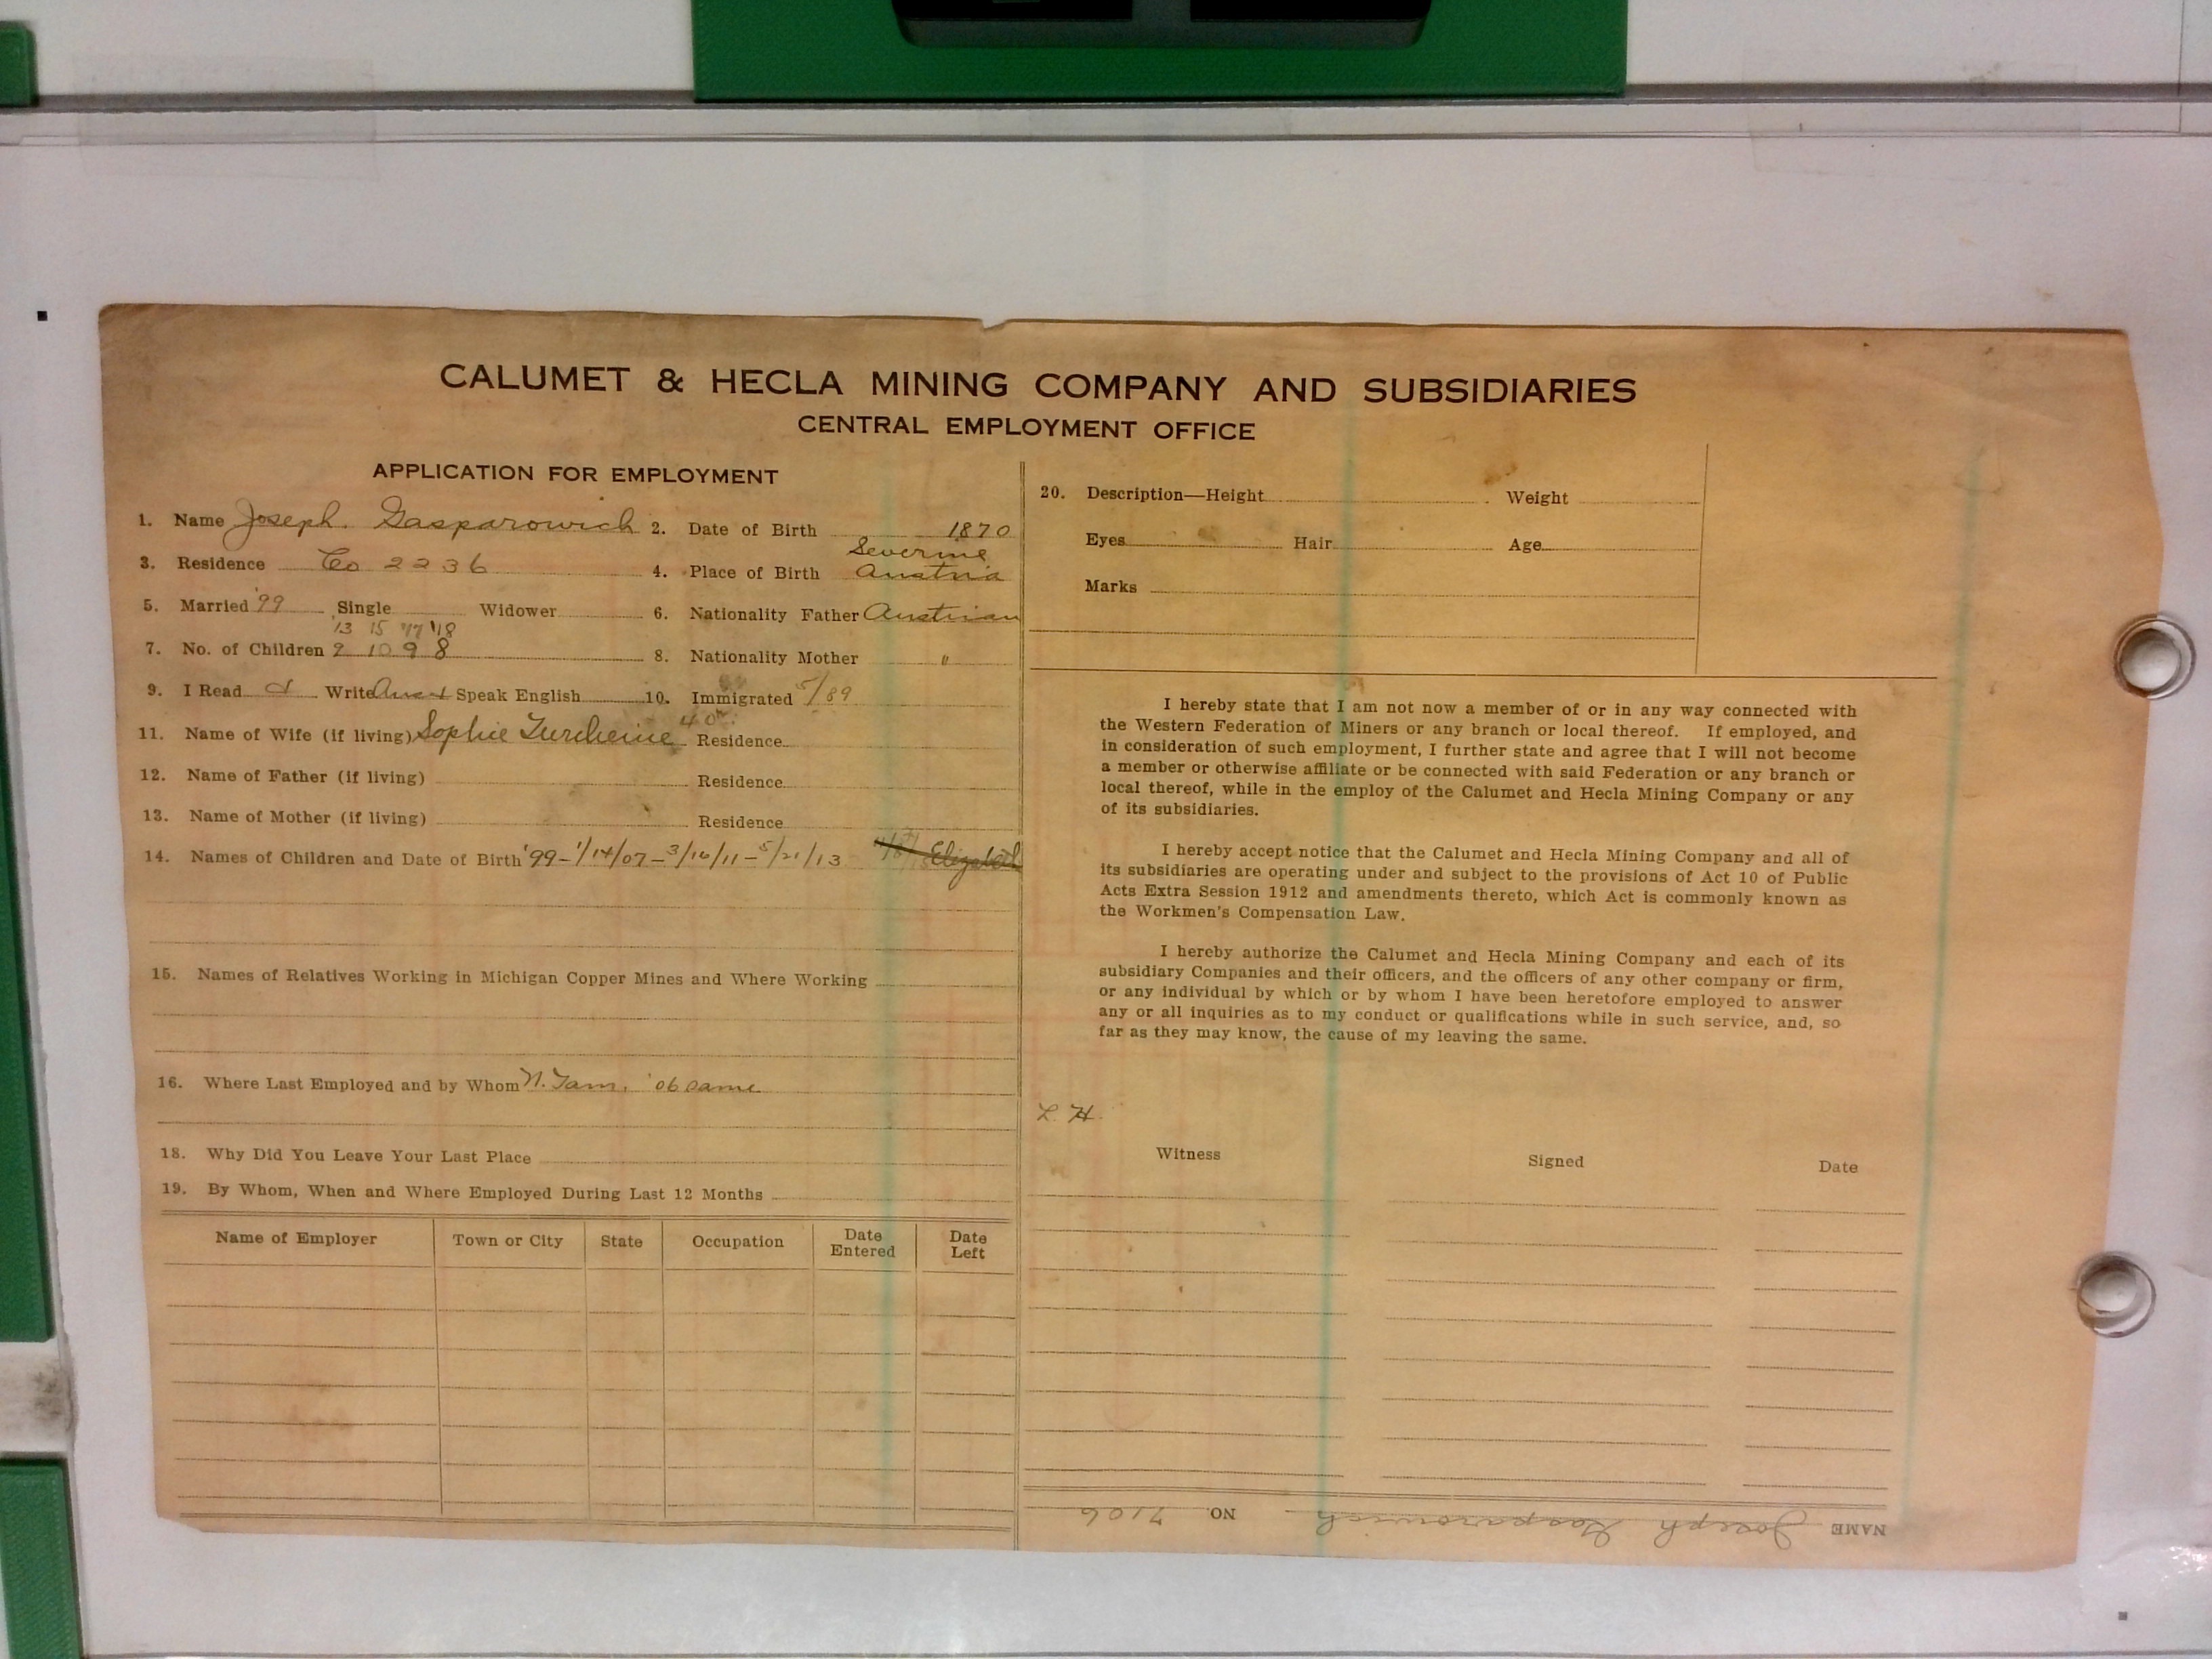 CALUMET & HECLA MINING COMPANY AND SUBSIDIARIES
CENTRAL EMPLOYMENT OFFICE
APPLICATION FOR EMPLOYMENT
1. Name Joseph. Gasparowich 2. Date of Birth 1870
Severine
3. Residence Co 2236 4. Place of Birth Austria
5. Married '99 Single Widower 6. Nationality Father Austrian
'13 15 '17 '18
7. No. of Children 9 10 9 8 8. Nationality Mother "
9. I Read Write Speak English 10. Immigrated 5/89
11. Name of Wife (if living) Sophie Residence
12. Name of Father (if living) Residence
13. Name of Mother (if living) Residence
14. Names of Children and Date of Birth '99-1/14/07-3/16/11-5/21/13 Elizabeth
15. Names of Relatives Working in Michigan Copper Mines and Where Working
16. Where Last Employed and by Whom N. Tam. '06 same
18. Why Did You Leave Your Last Place
19. By Whom, When and Where Employed During Last 12 Months
Name of Employer Town or City State Occupation Date Entered Date Left
20. Description—Height Weight
Eyes Hair Age
Marks
I hereby state that I am not now a member of or in any way connected with
the Western Federation of Miners or any branch or local thereof. If employed, and
in consideration of such employment, I further state and agree that I will not become
a member or otherwise affiliate or be connected with said Federation or any branch or
local thereof, while in the employ of the Calumet and Hecla Mining Company or any
of its subsidiaries.
I hereby accept notice that the Calumet and Hecla Mining Company and all of
its subsidiaries are operating under and subject to the provisions of Act 10 of Public
Acts Extra Session 1912 and amendments thereto, which Act is commonly known as
the Workmen's Compensation Law.
I hereby authorize the Calumet and Hecla Mining Company and each of its
subsidiary Companies and their officers, and the officers of any other company or firm,
or any individual by which or by whom I have been heretofore employed to answer
any or all inquiries as to my conduct or qualifications while in such service, and, so
far as they may know, the cause of my leaving the same.
L. H.
Witness Signed Date
NAME Joseph Gasparowich NO. 7106